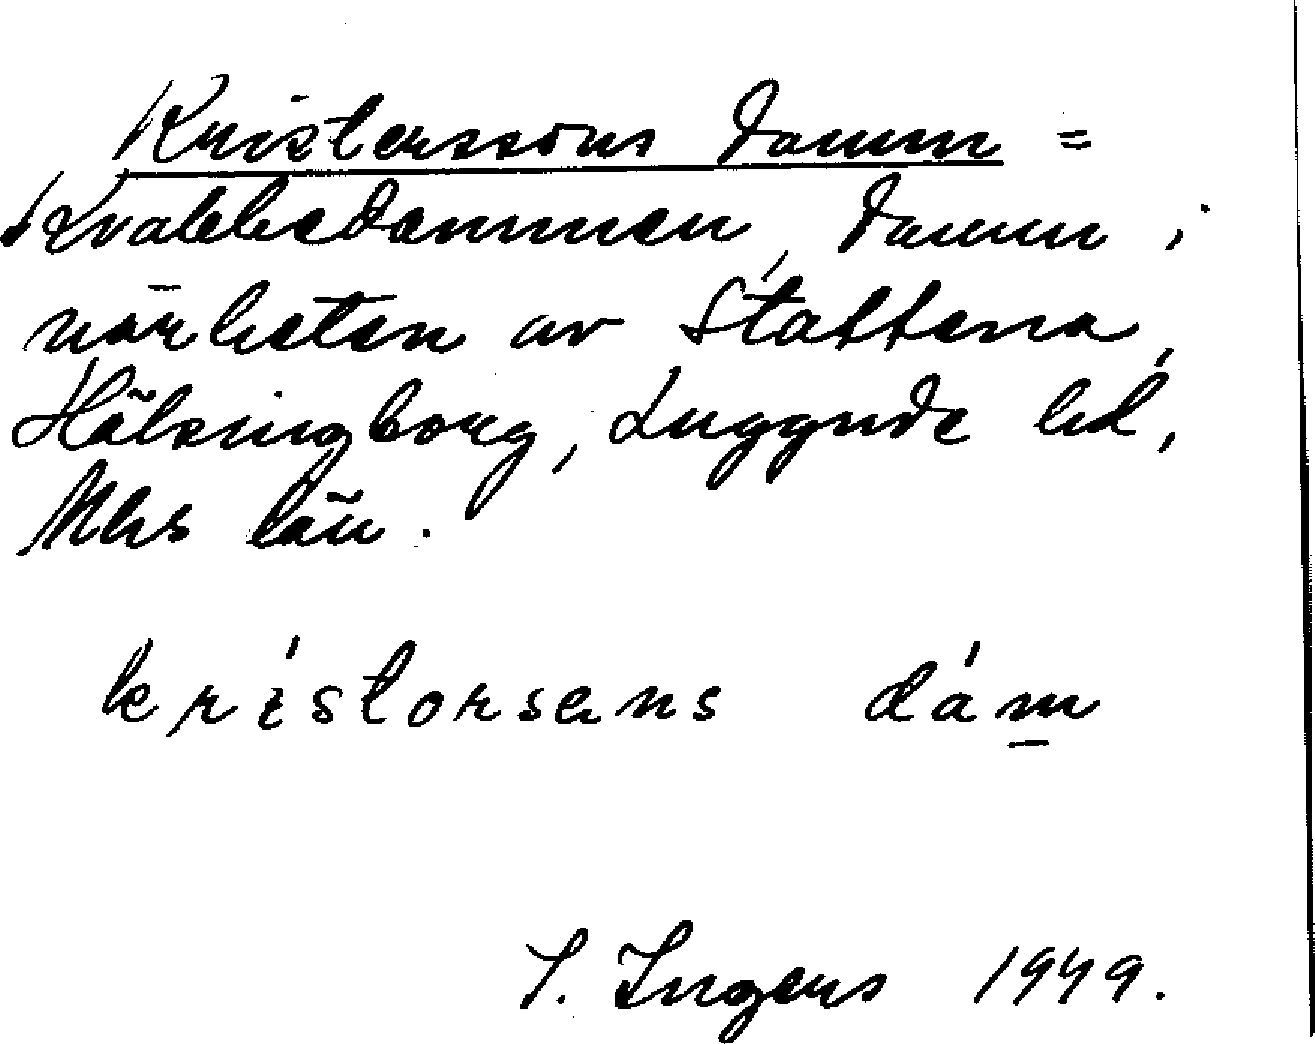 Kristerssons damm =
Kvabbedammen, damm i
närheten av Stattena,
Hälsingborg, Luggude hd,
Mhs län.
kristorsens dám
I. Ingers 1949.